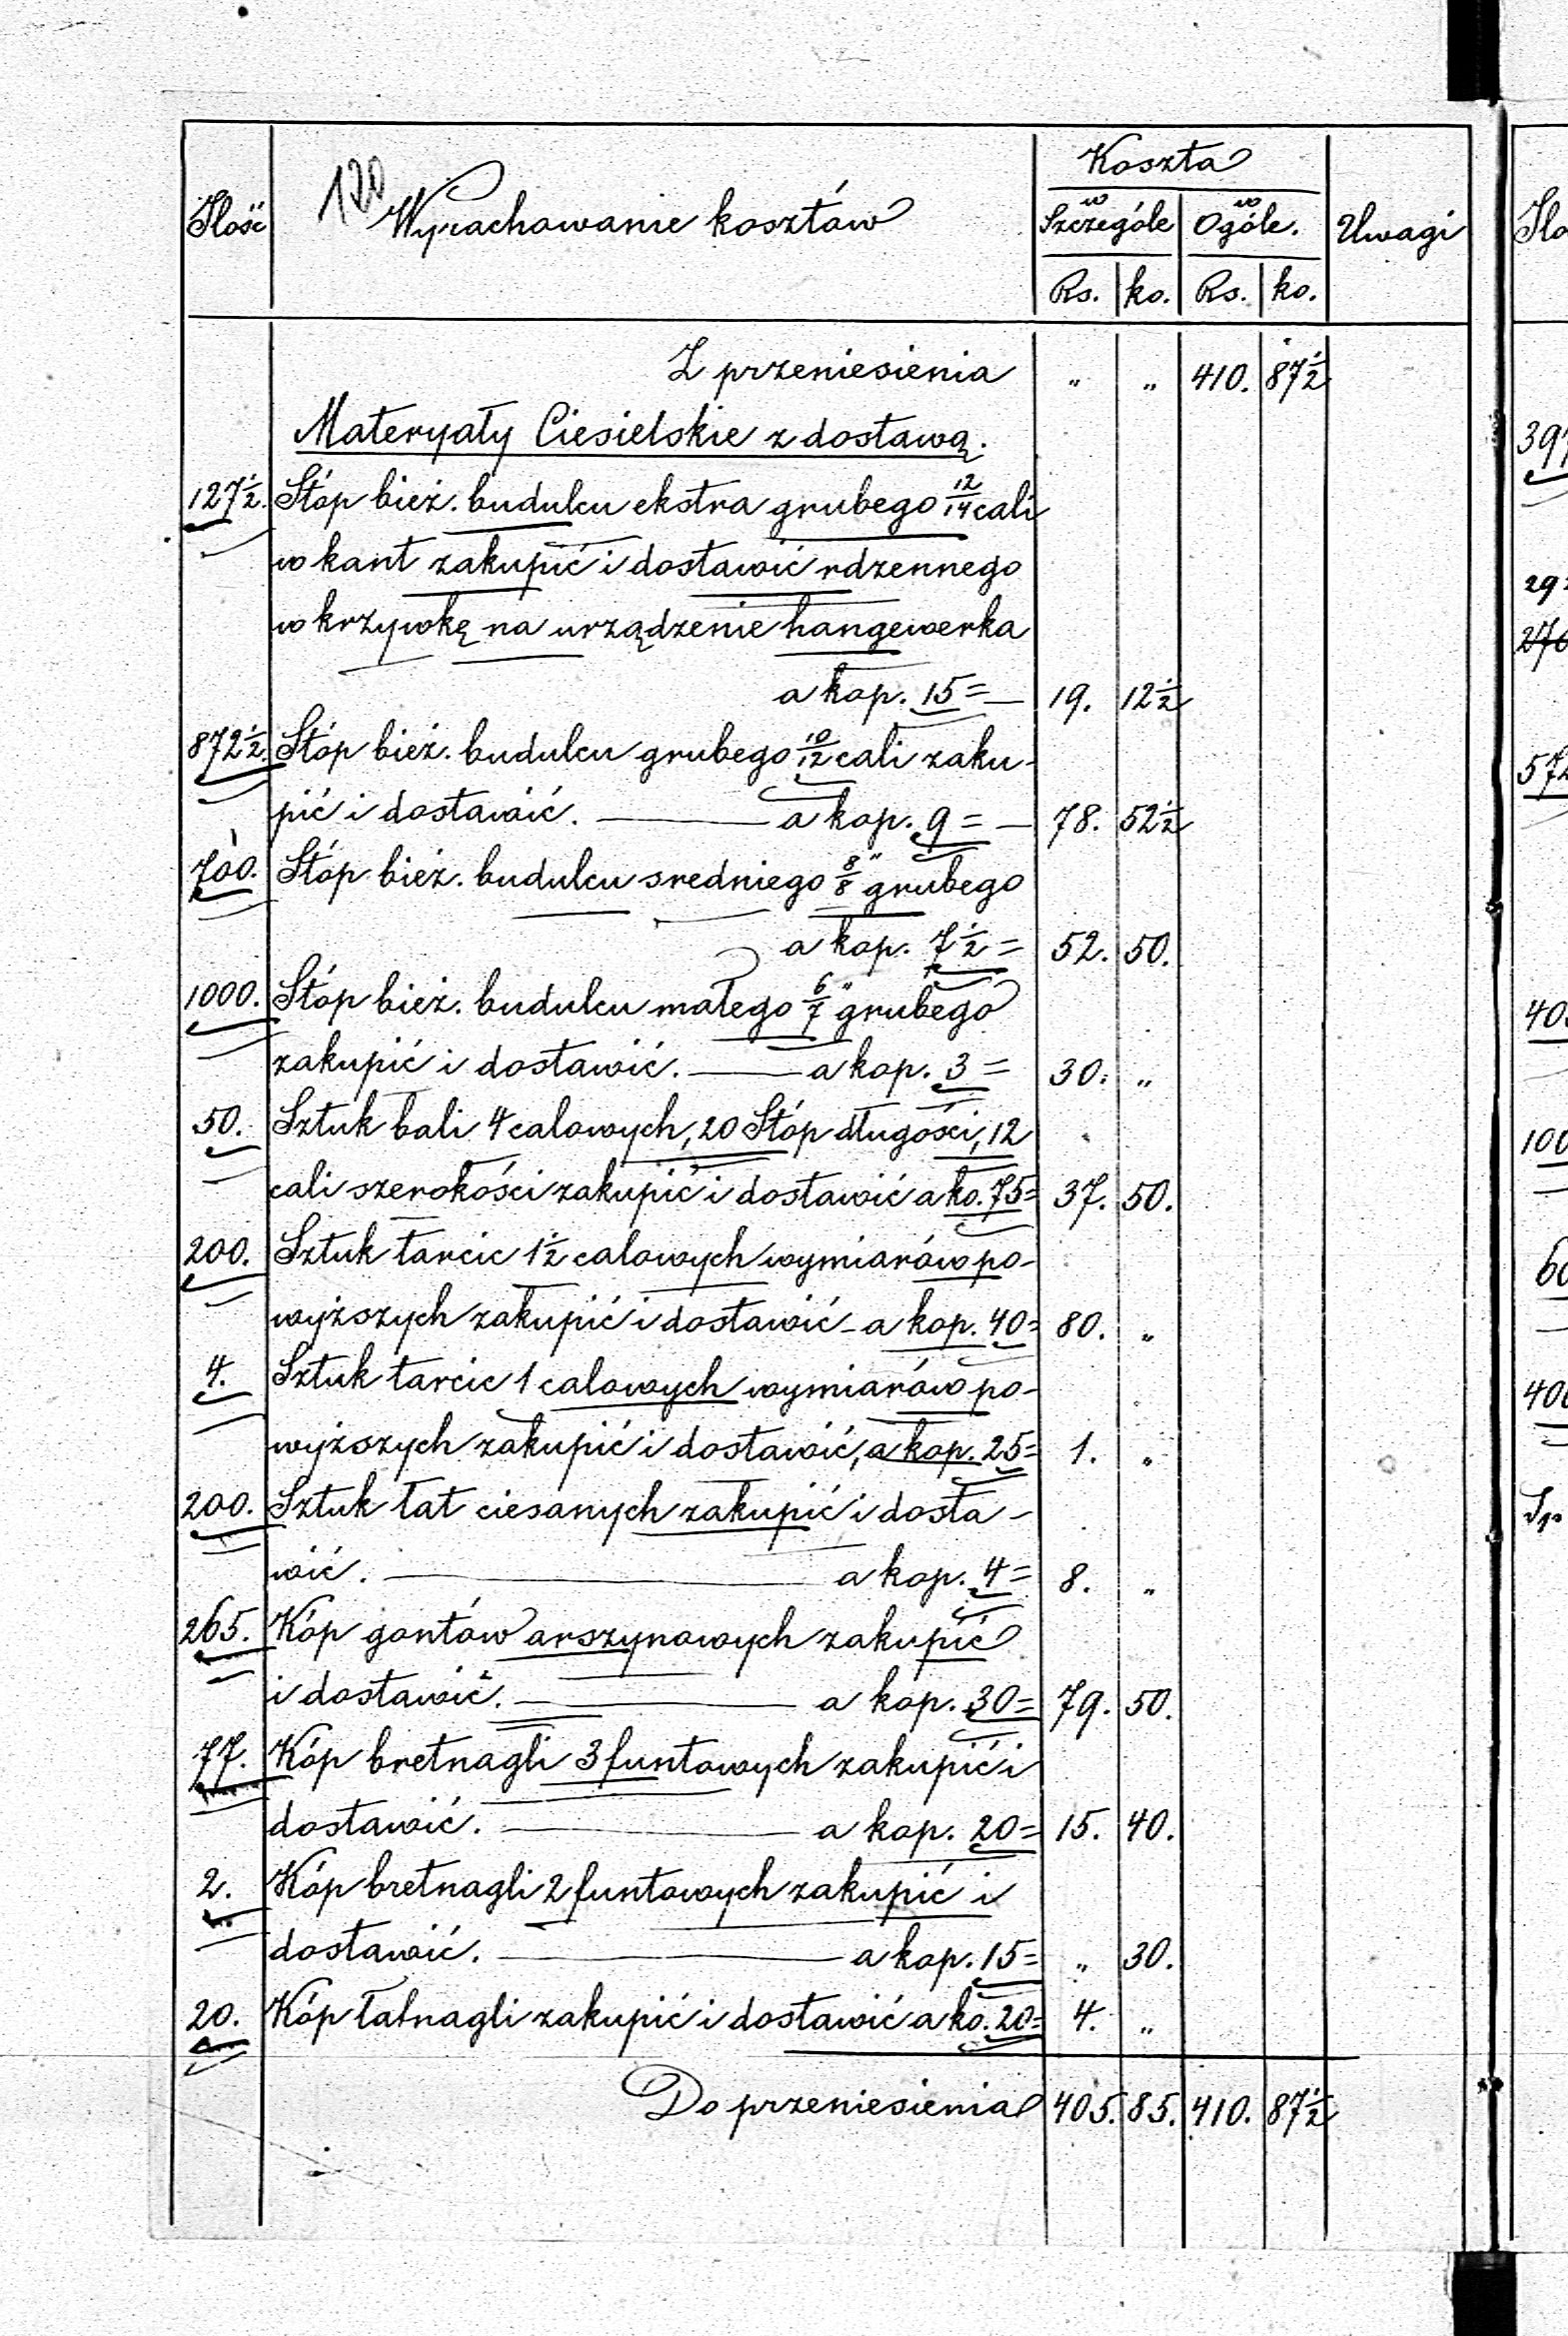 120
Ilość Wyrachowanie kosztów Koszta Uwagi
w Szczególe w Ogóle.
Rs. ko. Rs. ko.
Z przeniesienia „ „ 410. 87½
Materyały Ciesielskie z dostawą.
127½. Stóp bież. budulcu ekstra grubego 12/14 cali
w kant zakupić i dostawić rdzennego
w krzywkę na urządzenie hangewerka
a kop. 15= — 19. 12½
872½. Stóp bież. budulcu grubego 10/12 cali zaku-
pić i dostawić. — a kop. 9= — 78. 52½
700. Stóp bież. budulcu sredniego 8/8" grubego
a kop. 7½= 52. 50.
1000. Stóp bież. budulcu małego 6/7" grubego
zakupić i dostawić. — a kop. 3= 30. „
50. Sztuk bali 4 calowych, 20 Stóp długości, 12
cali szerokości zakupić i dostawić a ko. 75= 37. 50.
200. Sztuk tarcic 1½ calowych wymiarów po-
wyższych zakupić i dostawić - a kop. 40= 80. „
4. Sztuk tarcic 1 calowych wymiarów po-
wyższych zakupić i dostawić, a kop. 25= 1. „
200. Sztuk łat ciesanych zakupić i dosta-
wić. — a kop. 4= 8. „
265. Kóp gontów arszynowych zakupić
i dostawić. — a kop. 30= 79. 50.
77. Kóp bretnagli 3 funtowych zakupić i
dostawić. — a kop. 20= 15. 40.
2. Kóp bretnagli 2 funtowych zakupić i
dostawić. — a kop. 15= „ 30.
20. Kóp łatnagli zakupić i dostawić a ko. 20= 4. „
Do przeniesienia 405. 85. 410. 87½